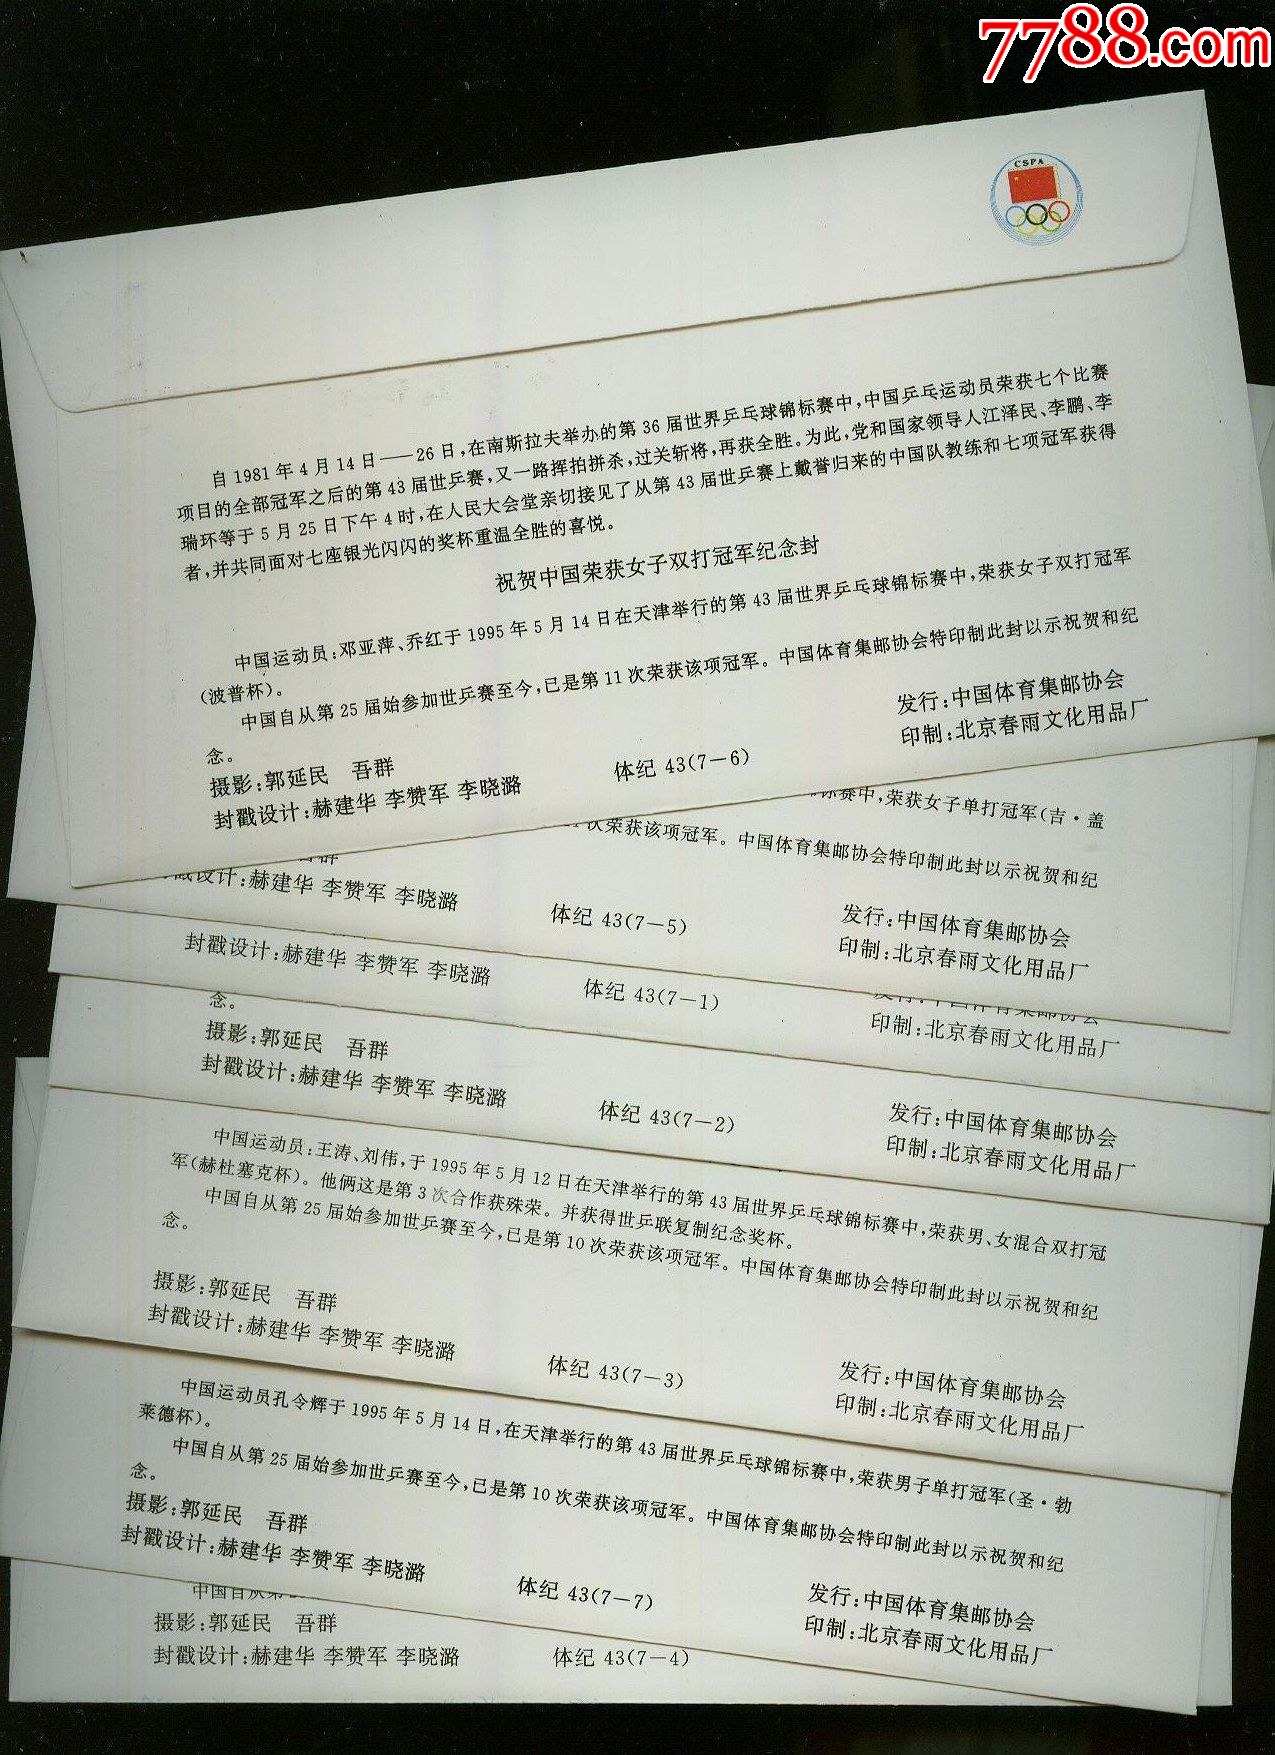 7788.com
CSPA
自1981年4月14日——26日,在南斯拉夫举办的第36届世界乒乓球锦标赛中,中国乒乓运动员荣获七个比赛
项目的全部冠军之后的第43届世乒赛,又一路挥拍拼杀,过关斩将,再获全胜。为此,党和国家领导人江泽民、李鹏、李
瑞环等于5月25日下午4时,在人民大会堂亲切接见了从第43届世乒赛上戴誉归来的中国队教练和七项冠军获得
者,并共同面对七座银光闪闪的奖杯重温全胜的喜悦。
祝贺中国荣获女子双打冠军纪念封
中国运动员:邓亚萍、乔红于1995年5月14日在天津举行的第43届世界乒乓球锦标赛中,荣获女子双打冠军
(波普杯)。
中国自从第25届始参加世乒赛至今,已是第11次荣获该项冠军。中国体育集邮协会特印制此封以示祝贺和纪
念。
发行:中国体育集邮协会
印制:北京春雨文化用品厂
摄影:郭延民 吾群
封戳设计:赫建华 李赞军 李晓潞
体纪43(7-6)
标赛中,荣获女子单打冠军(吉·盖
次荣获该项冠军。中国体育集邮协会特印制此封以示祝贺和纪
吾群
戳设计:赫建华 李赞军 李晓潞
体纪43(7-5)
发行:中国体育集邮协会
印制:北京春雨文化用品厂
封戳设计:赫建华 李赞军 李晓潞
体纪43(7-1)
发行:中国体育集邮协会
印制:北京春雨文化用品厂
念。
摄影:郭延民 吾群
封戳设计:赫建华 李赞军 李晓潞
体纪43(7-2)
发行:中国体育集邮协会
印制:北京春雨文化用品厂
中国运动员:王涛、刘伟,于1995年5月12日在天津举行的第43届世界乒乓球锦标赛中,荣获男、女混合双打冠
军(赫杜塞克杯)。他俩这是第3次合作获殊荣。并获得世乒联复制纪念奖杯。
中国自从第25届始参加世乒赛至今,已是第10次荣获该项冠军。中国体育集邮协会特印制此封以示祝贺和纪
念。
摄影:郭延民 吾群
封戳设计:赫建华 李赞军 李晓潞
体纪43(7-3)
发行:中国体育集邮协会
印制:北京春雨文化用品厂
中国运动员孔令辉于1995年5月14日,在天津举行的第43届世界乒乓球锦标赛中,荣获男子单打冠军(圣·勃
莱德杯)。
中国自从第25届始参加世乒赛至今,已是第10次荣获该项冠军。中国体育集邮协会特印制此封以示祝贺和纪
念。
摄影:郭延民 吾群
封戳设计:赫建华 李赞军 李晓潞
体纪43(7-7)
发行:中国体育集邮协会
印制:北京春雨文化用品厂
中国自从第
摄影:郭延民 吾群
封戳设计:赫建华 李赞军 李晓潞
体纪43(7-4)